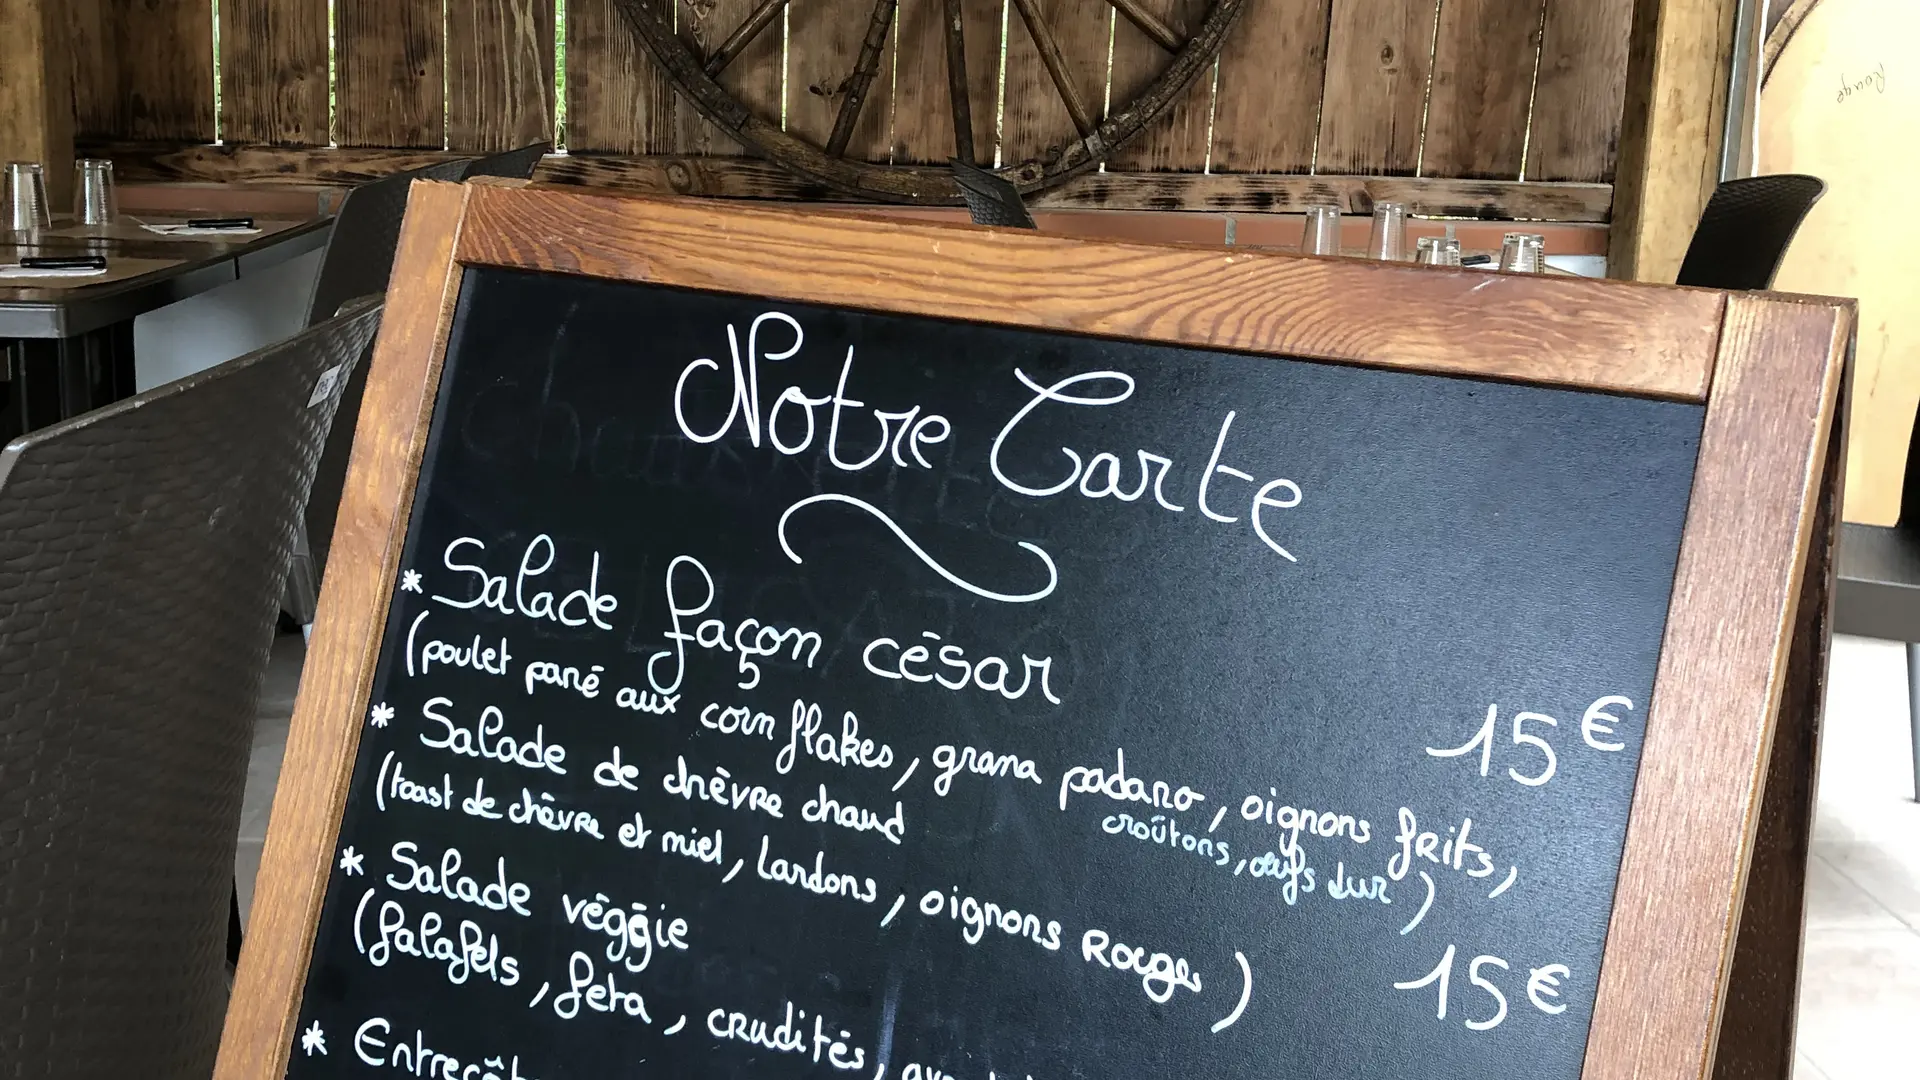 Notre Carte
* Salade façon césar 15€
(poulet pané aux corn flakes, grana padano, oignons frits,
croûtons, œufs dur)
* Salade de chèvre chaud 15€
(toast de chèvre et miel, lardons, oignons Rouges)
* Salade véggie
(falafels, feta, crudités,
* Entrecôt
Rouge